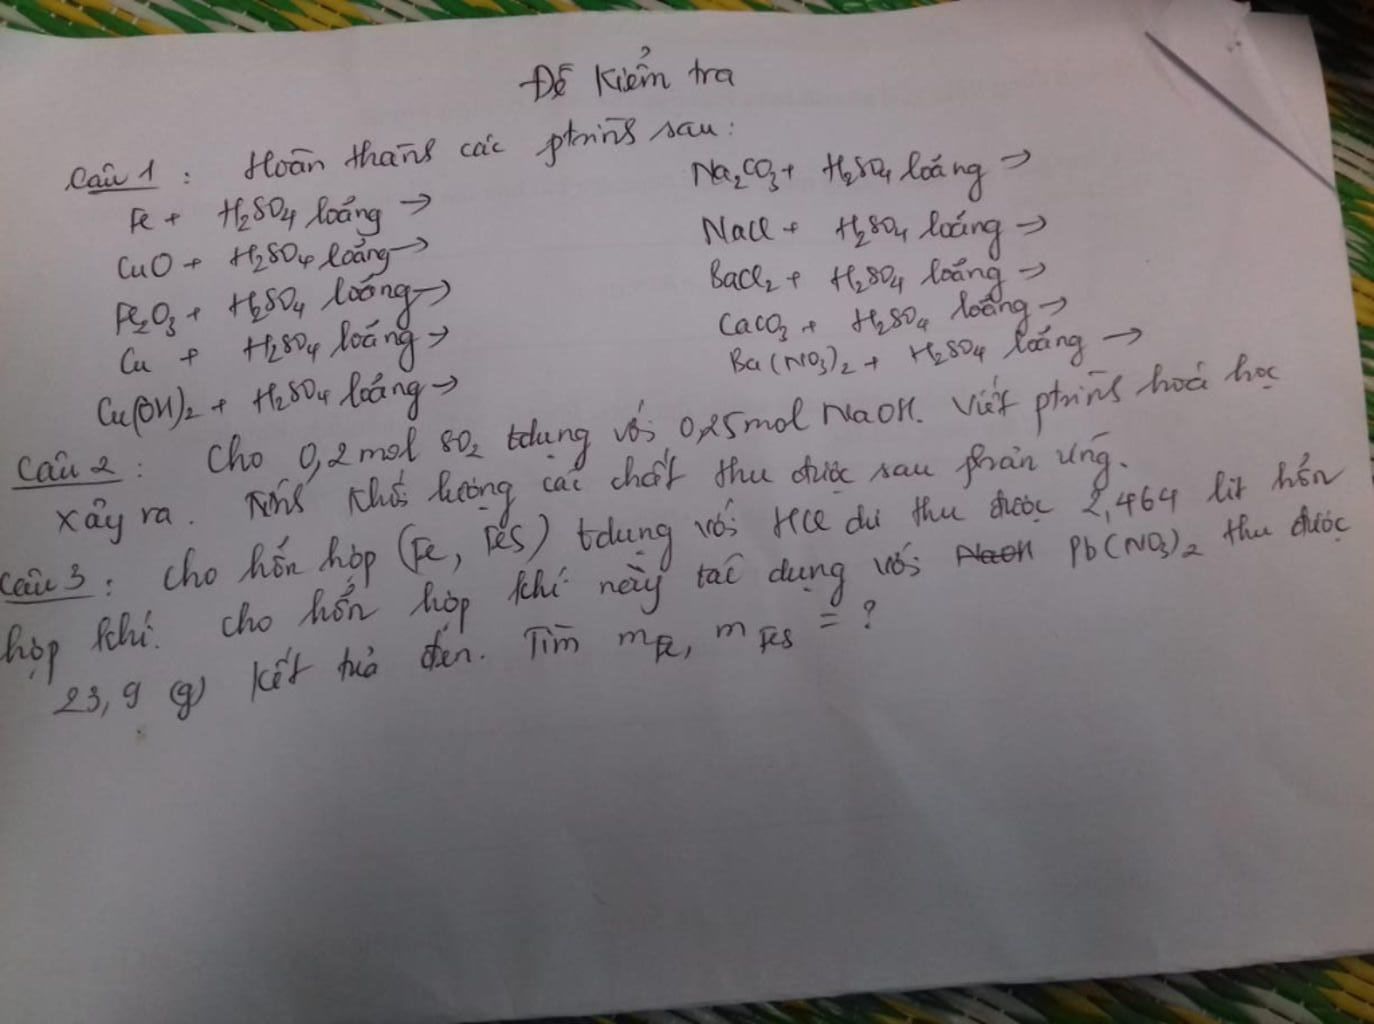 Đề kiểm tra
Câu 1 : Hoàn thành các ptrình sau:
Fe + H₂SO₄ loãng →
CuO + H₂SO₄ loãng →
Fe₂O₃ + H₂SO₄ loãng →
Cu + H₂SO₄ loãng →
Cu(OH)₂ + H₂SO₄ loãng →
Na₂CO₃ + H₂SO₄ loãng →
NaCl + H₂SO₄ loãng →
BaCl₂ + H₂SO₄ loãng →
CaCO₃ + H₂SO₄ loãng →
Ba(NO₃)₂ + H₂SO₄ loãng →
Câu 2 : Cho 0,2 mol SO₂ tdụng với 0,25 mol NaOH. Viết ptrình hoá học
xảy ra. Tính khối lượng các chất thu được sau phản ứng.
Câu 3 : Cho hỗn hợp (Fe, FeS) tdụng với HCl dư thu được 2,464 lít hỗn
hợp khí. Cho hỗn hợp khí này tác dụng với NaOH Pb(NO₃)₂ thu được
23,9 (g) kết tủa đen. Tìm mFe, mFeS = ?